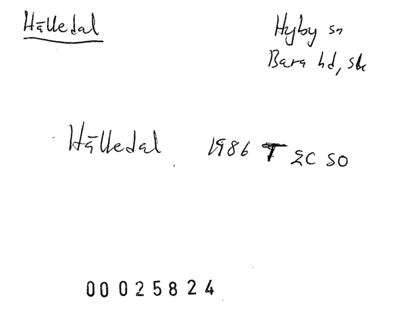 Hälledal
Hyby sn
Bara hd, sk
Hälledal 1986 T 2C SO
00025824